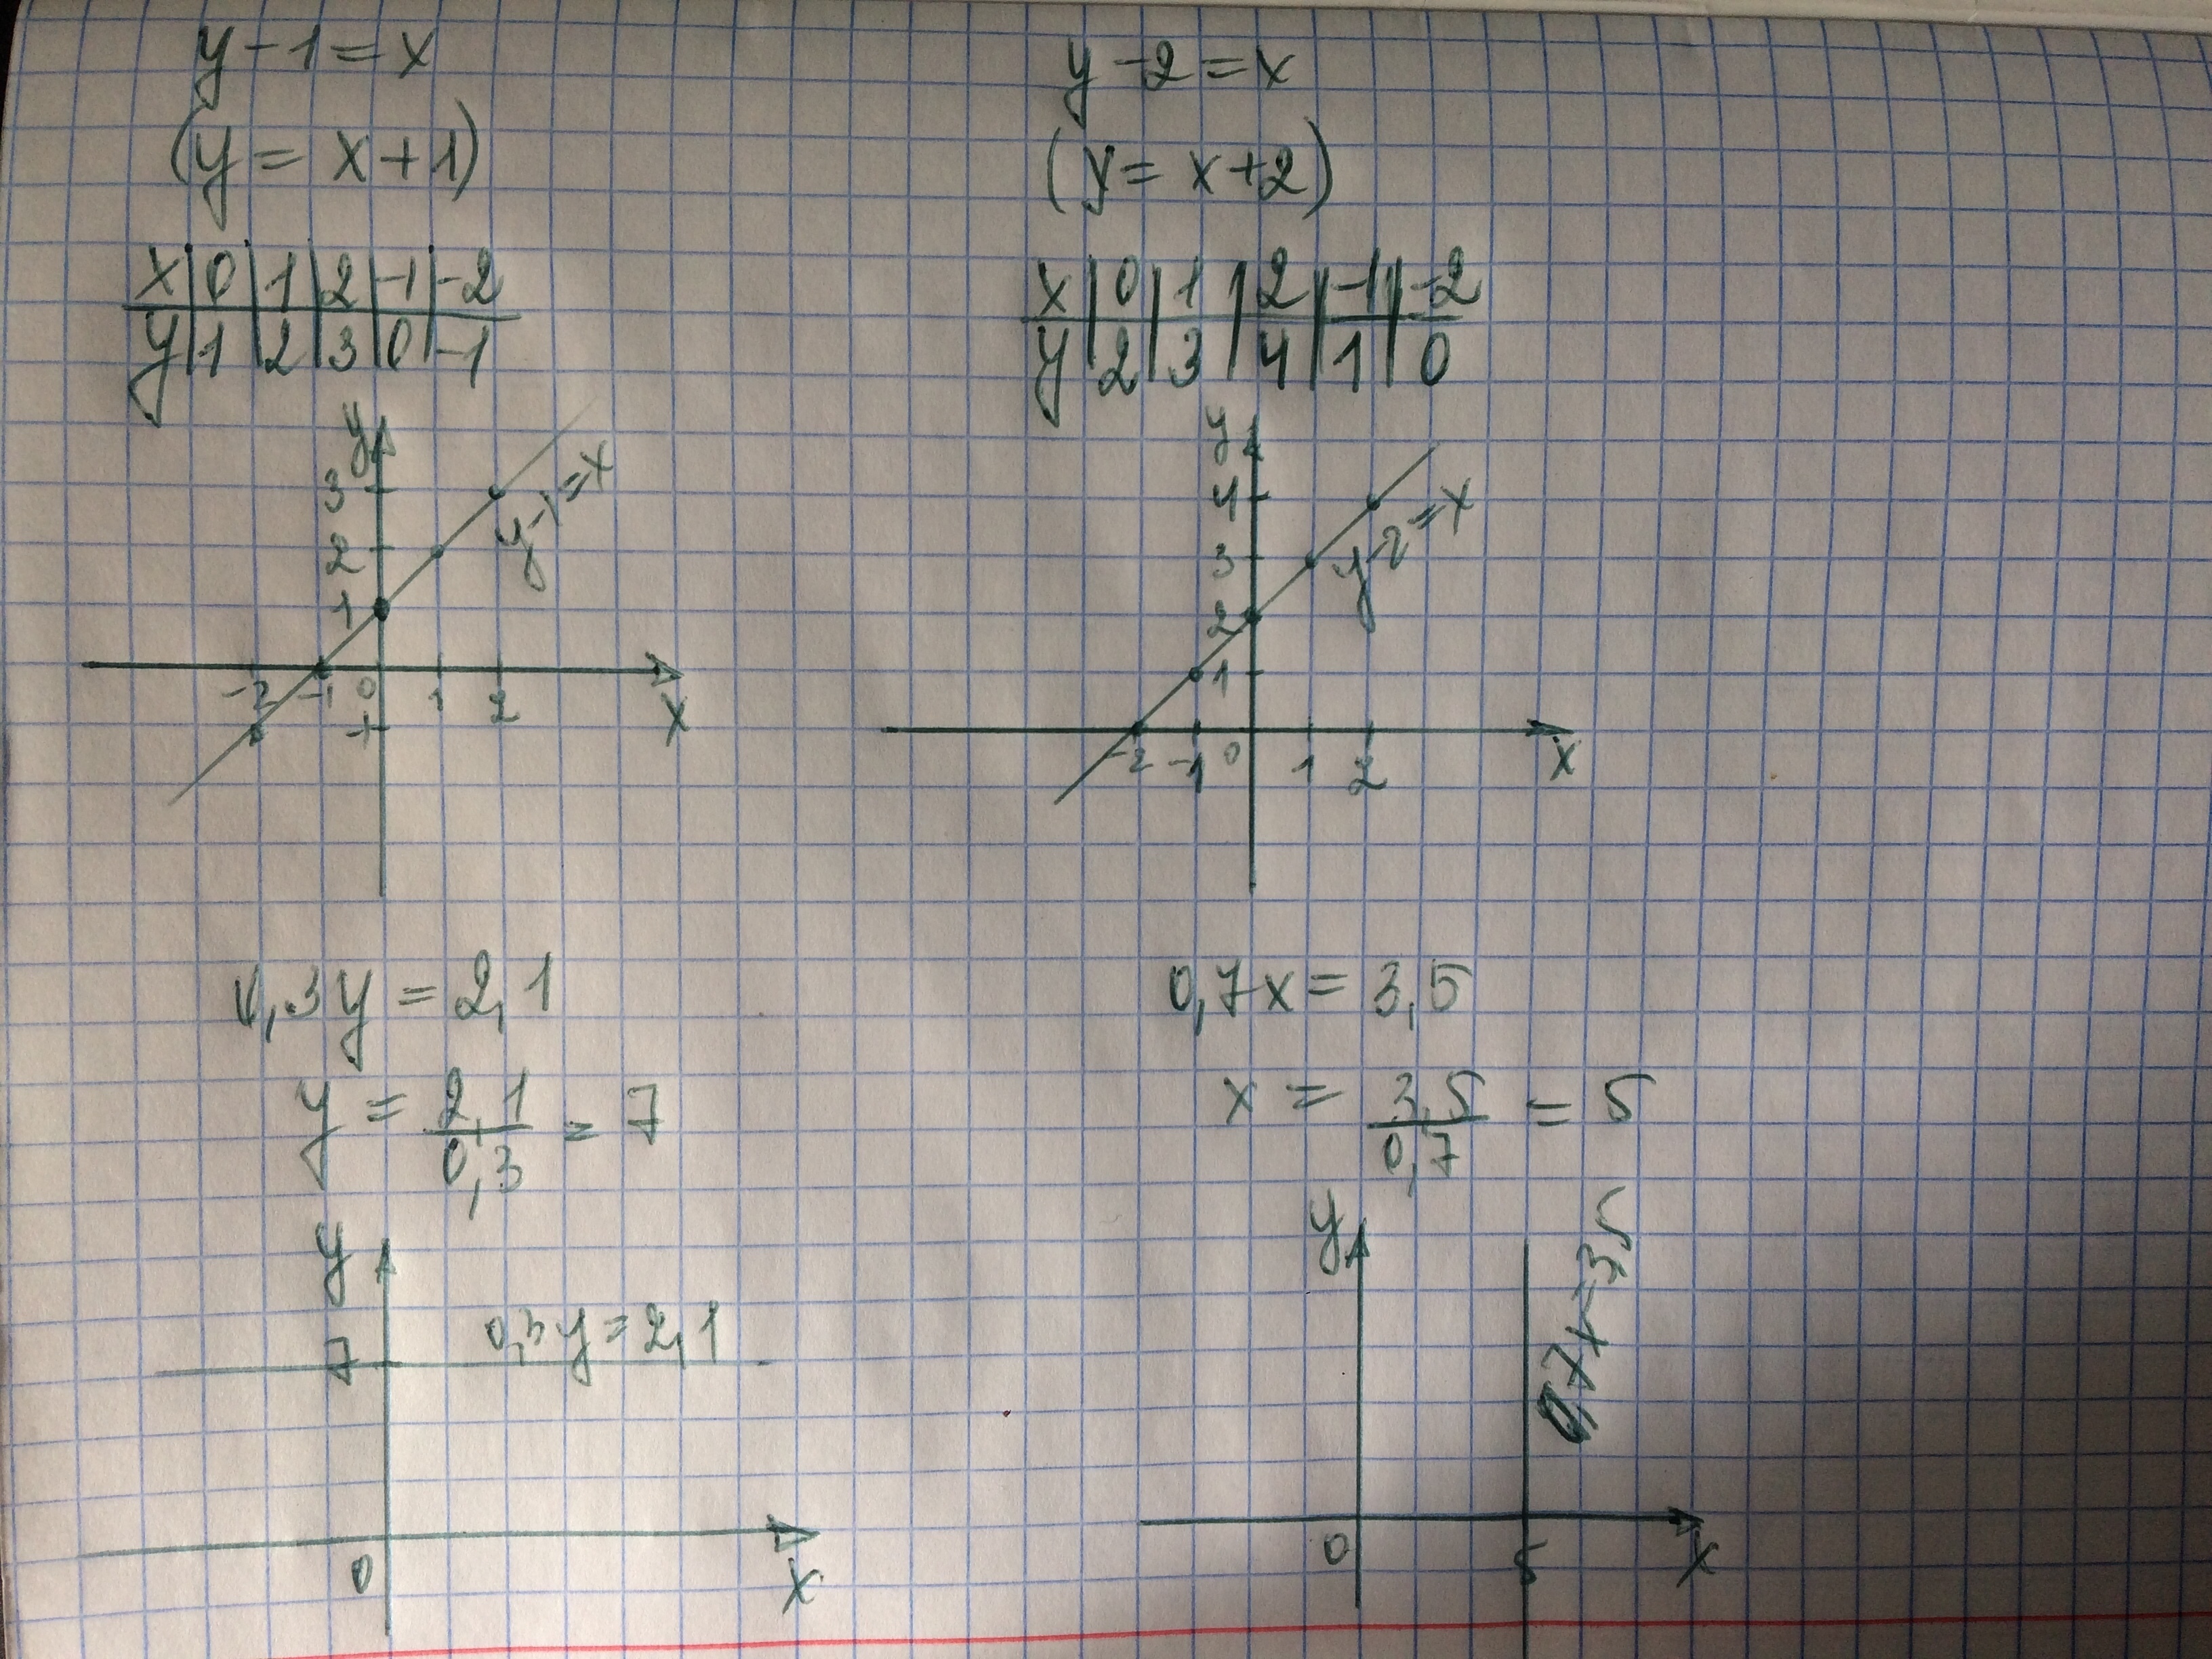 y-1=x
(y=x+1)
x|0|1|2|-1|-2
y|1|2|3|0|-1
y
3
2
1
-2 -1 0 1 2
x
-1
y-1=x
y-2=x
(y=x+2)
x|0|1|2|-1|-2
y|2|3|4|1|0
y
4
3
2
1
-2 -1 0 1 2
x
y-2=x
0,3y=2,1
y=2,1/0,3=7
y
7
0,3y=2,1
0
x
0,7x=3,5
x=3,5/0,7=5
y
0,7x=3,5
0 5
x